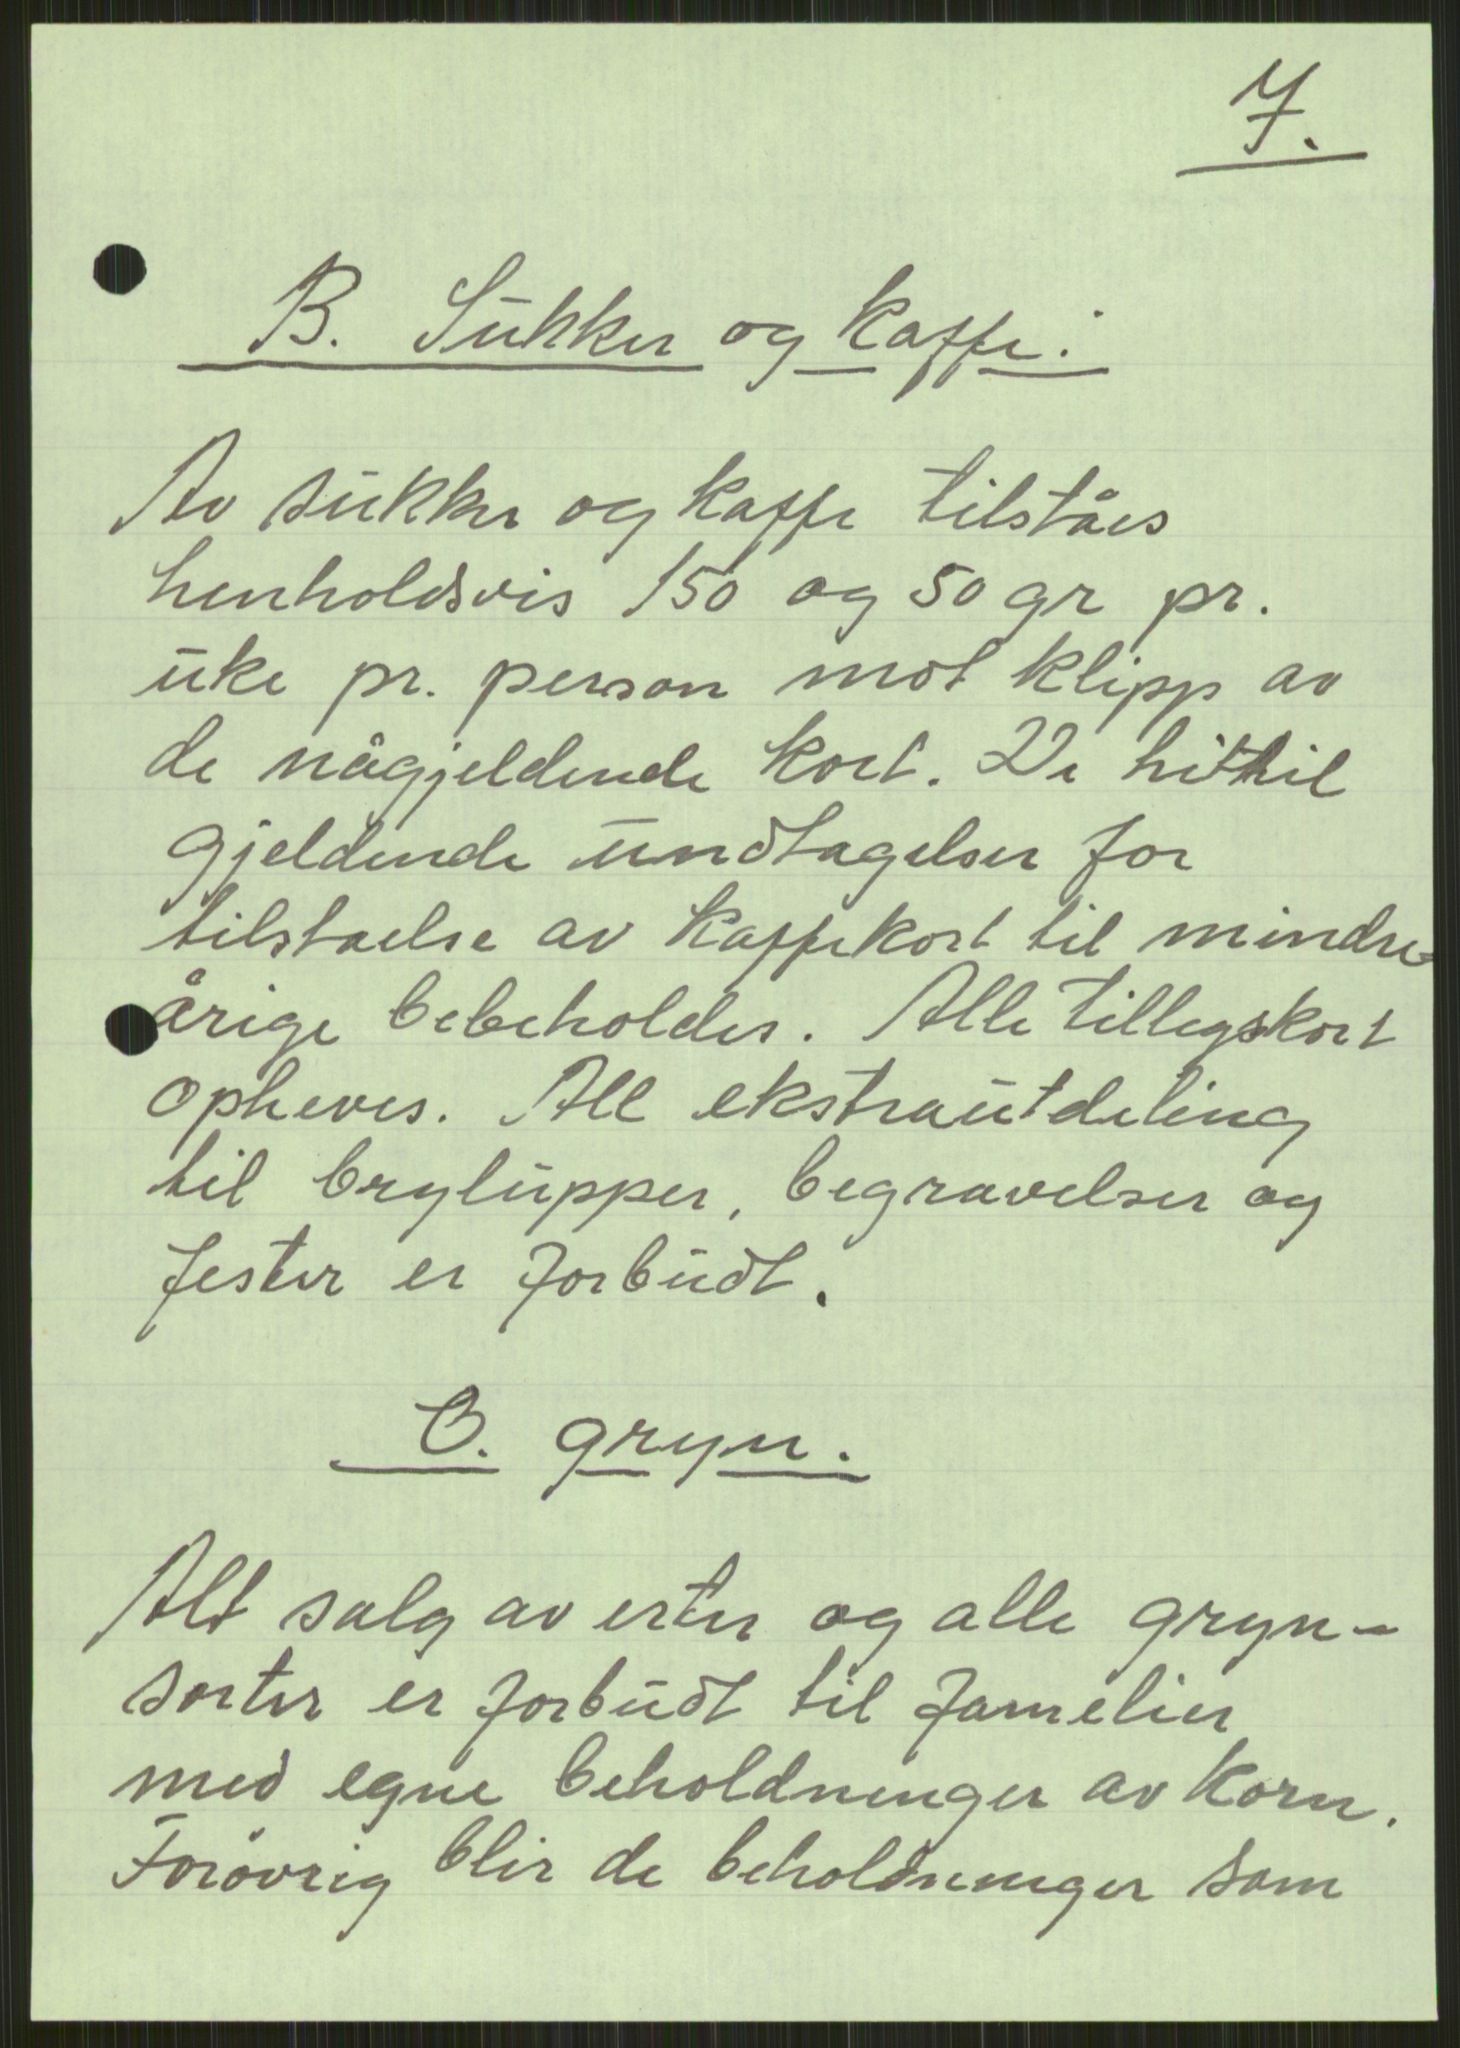 7.
B. Sukker og kaffe:
Av sukker og kaffe tilståes
henholdsvis 150 og 50 gr pr.
uke pr. person mot klipp av
de någjeldende kort. De hittil
gjeldende undtagelser for
tilstaelse av kaffekort til mindre-
årige bebeholdes. Alle tillegskort
opheves. All ekstrautdeling
til brylupper, begravelser og
fester er forbudt.
C. gryn.
Alt salg av erter og alle gryn-
sorter er forbudt til familier
med egne beholdninger av korn.
Forøvrig blir de beholdninger som